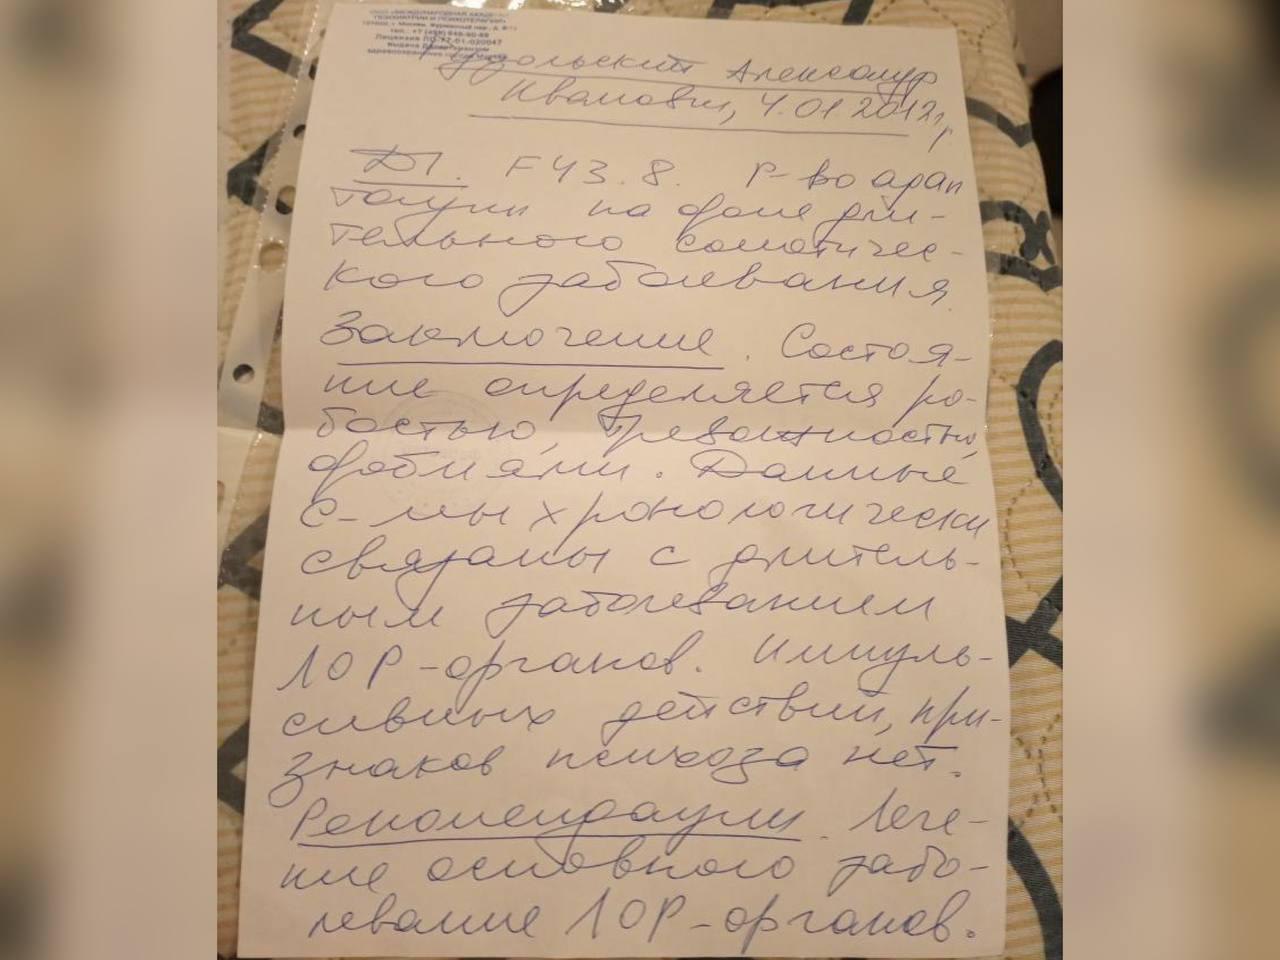 ООО «МЕЖДУНАРОДНАЯ АКАДЕМИЯ
ПСИХИАТРИИ И ПСИХОТЕРАПИИ»
Лицензия ЛО-77-01-020047
Александр
Иванович, 4.01.2012г,
DS. F43.8. Р-во адап
тации на фоне дли-
тельного соматичес-
кого заболевания.
Заключение. Состоя-
ние определяется ро-
бостью, тревожностью,
фобиями. Данные
с-мы хронологически
связаны с длитель-
ным заболеванием
ЛОР-органов. Импуль-
сивных действий, при-
знаков психоза нет.
Рекомендации. Лече-
ние основного забо-
левание ЛОР-органов.